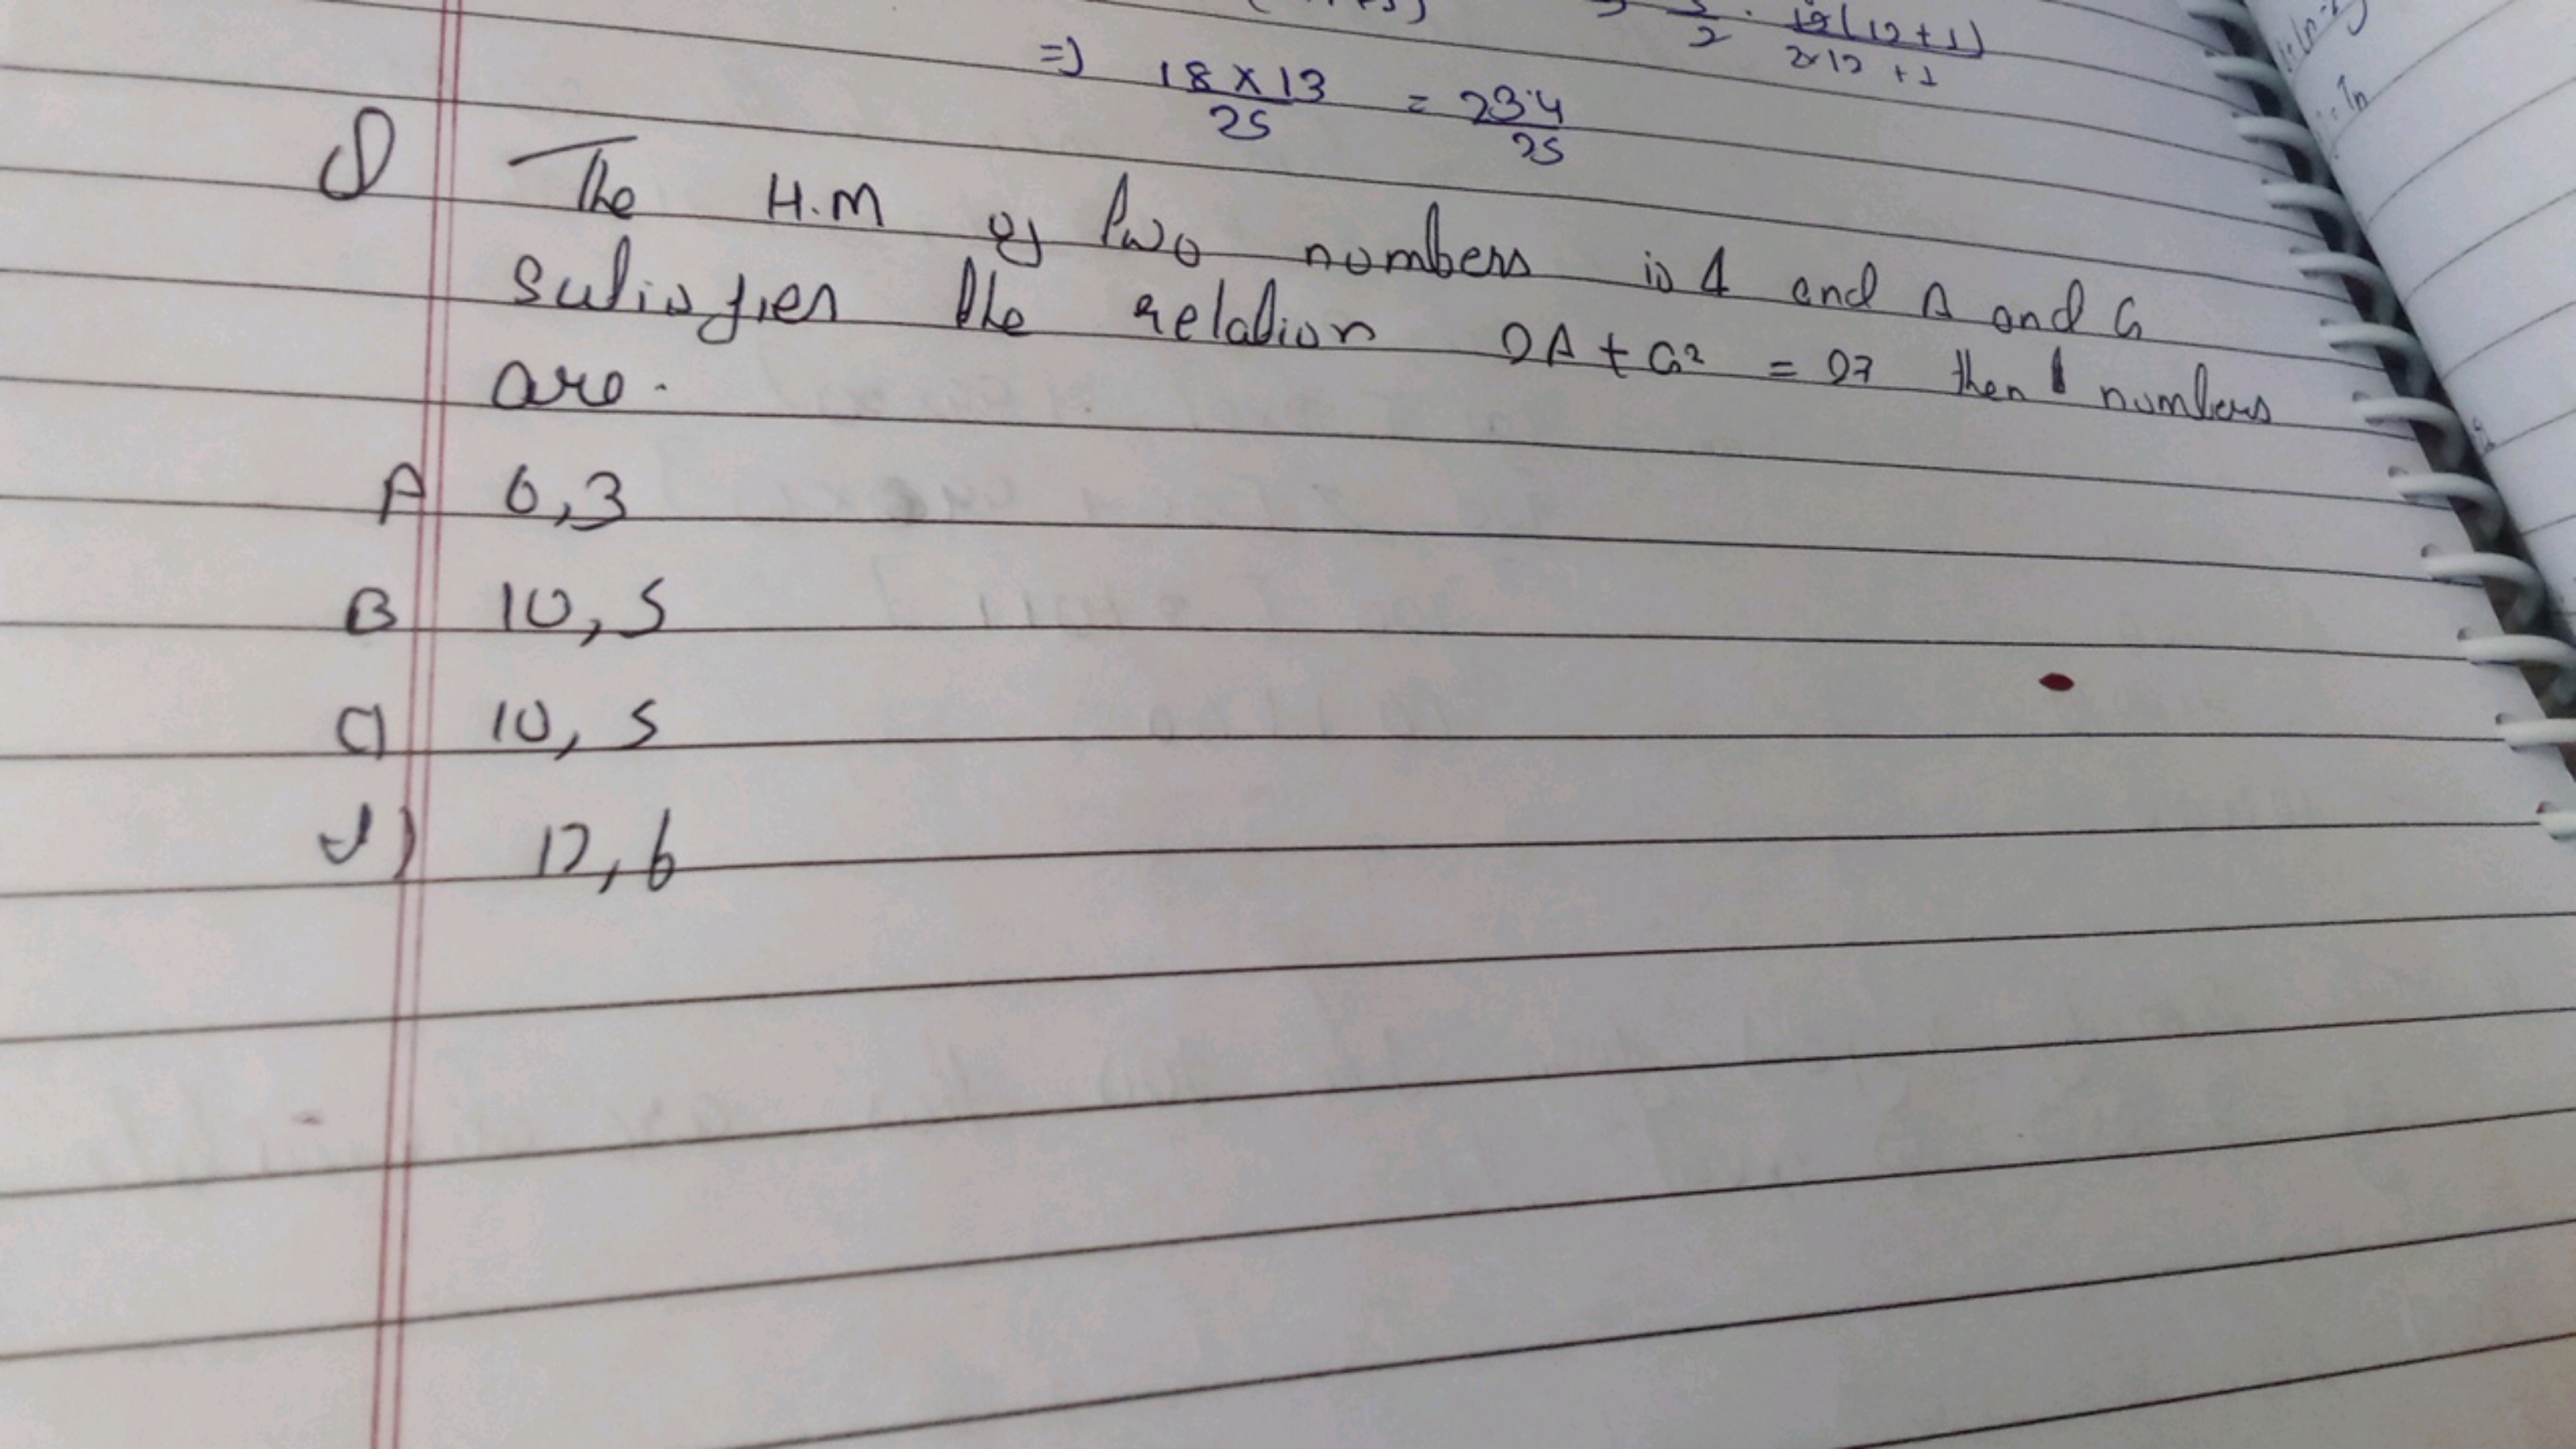 =) 18 × 13 / 25 = 23.4 / 25
12(12+1) / 2×12 +1
Q The H.M of two numbers is 4 and A and G
satisfies the relation 2A + G² = 27 then numbers
are.
A 6,3
B 10, 5
C) 10, 5
d) 12, 6